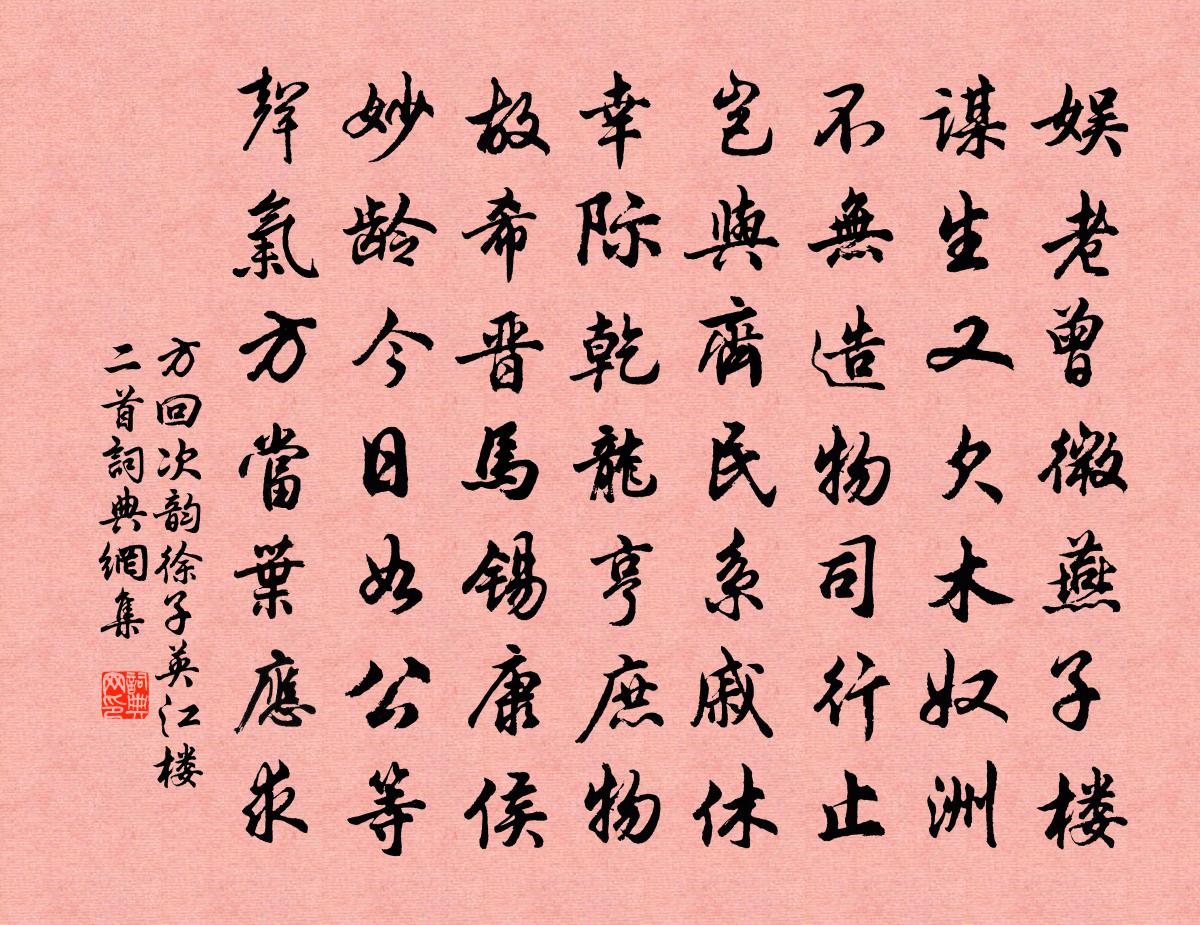 娱老曾微燕子楼
谋生又欠木奴洲
不無造物司行止
岂與齊民系戚休
幸际乾龍亨庶物
故希晋馬锡康侯
妙龄今日如公等
聲氣方當葉應求
方回次韵徐子英江楼
二首詞典網集
詞典网印